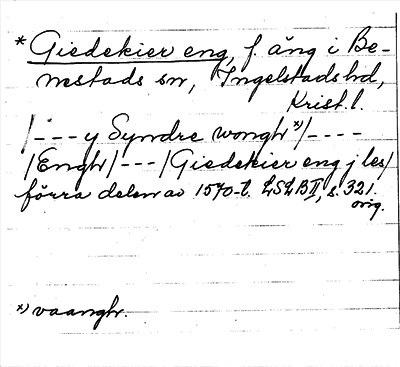 * Giedekier eng, f. äng i Be-
mestads sn, Ingelstads hd,
Krist. l.
/--- y Syndre wongh *)/----
/Engh/---/Giedekier eng j les/
förra delen av 1570-t. LSLB II, s. 321.
orig.
*) vaangh.